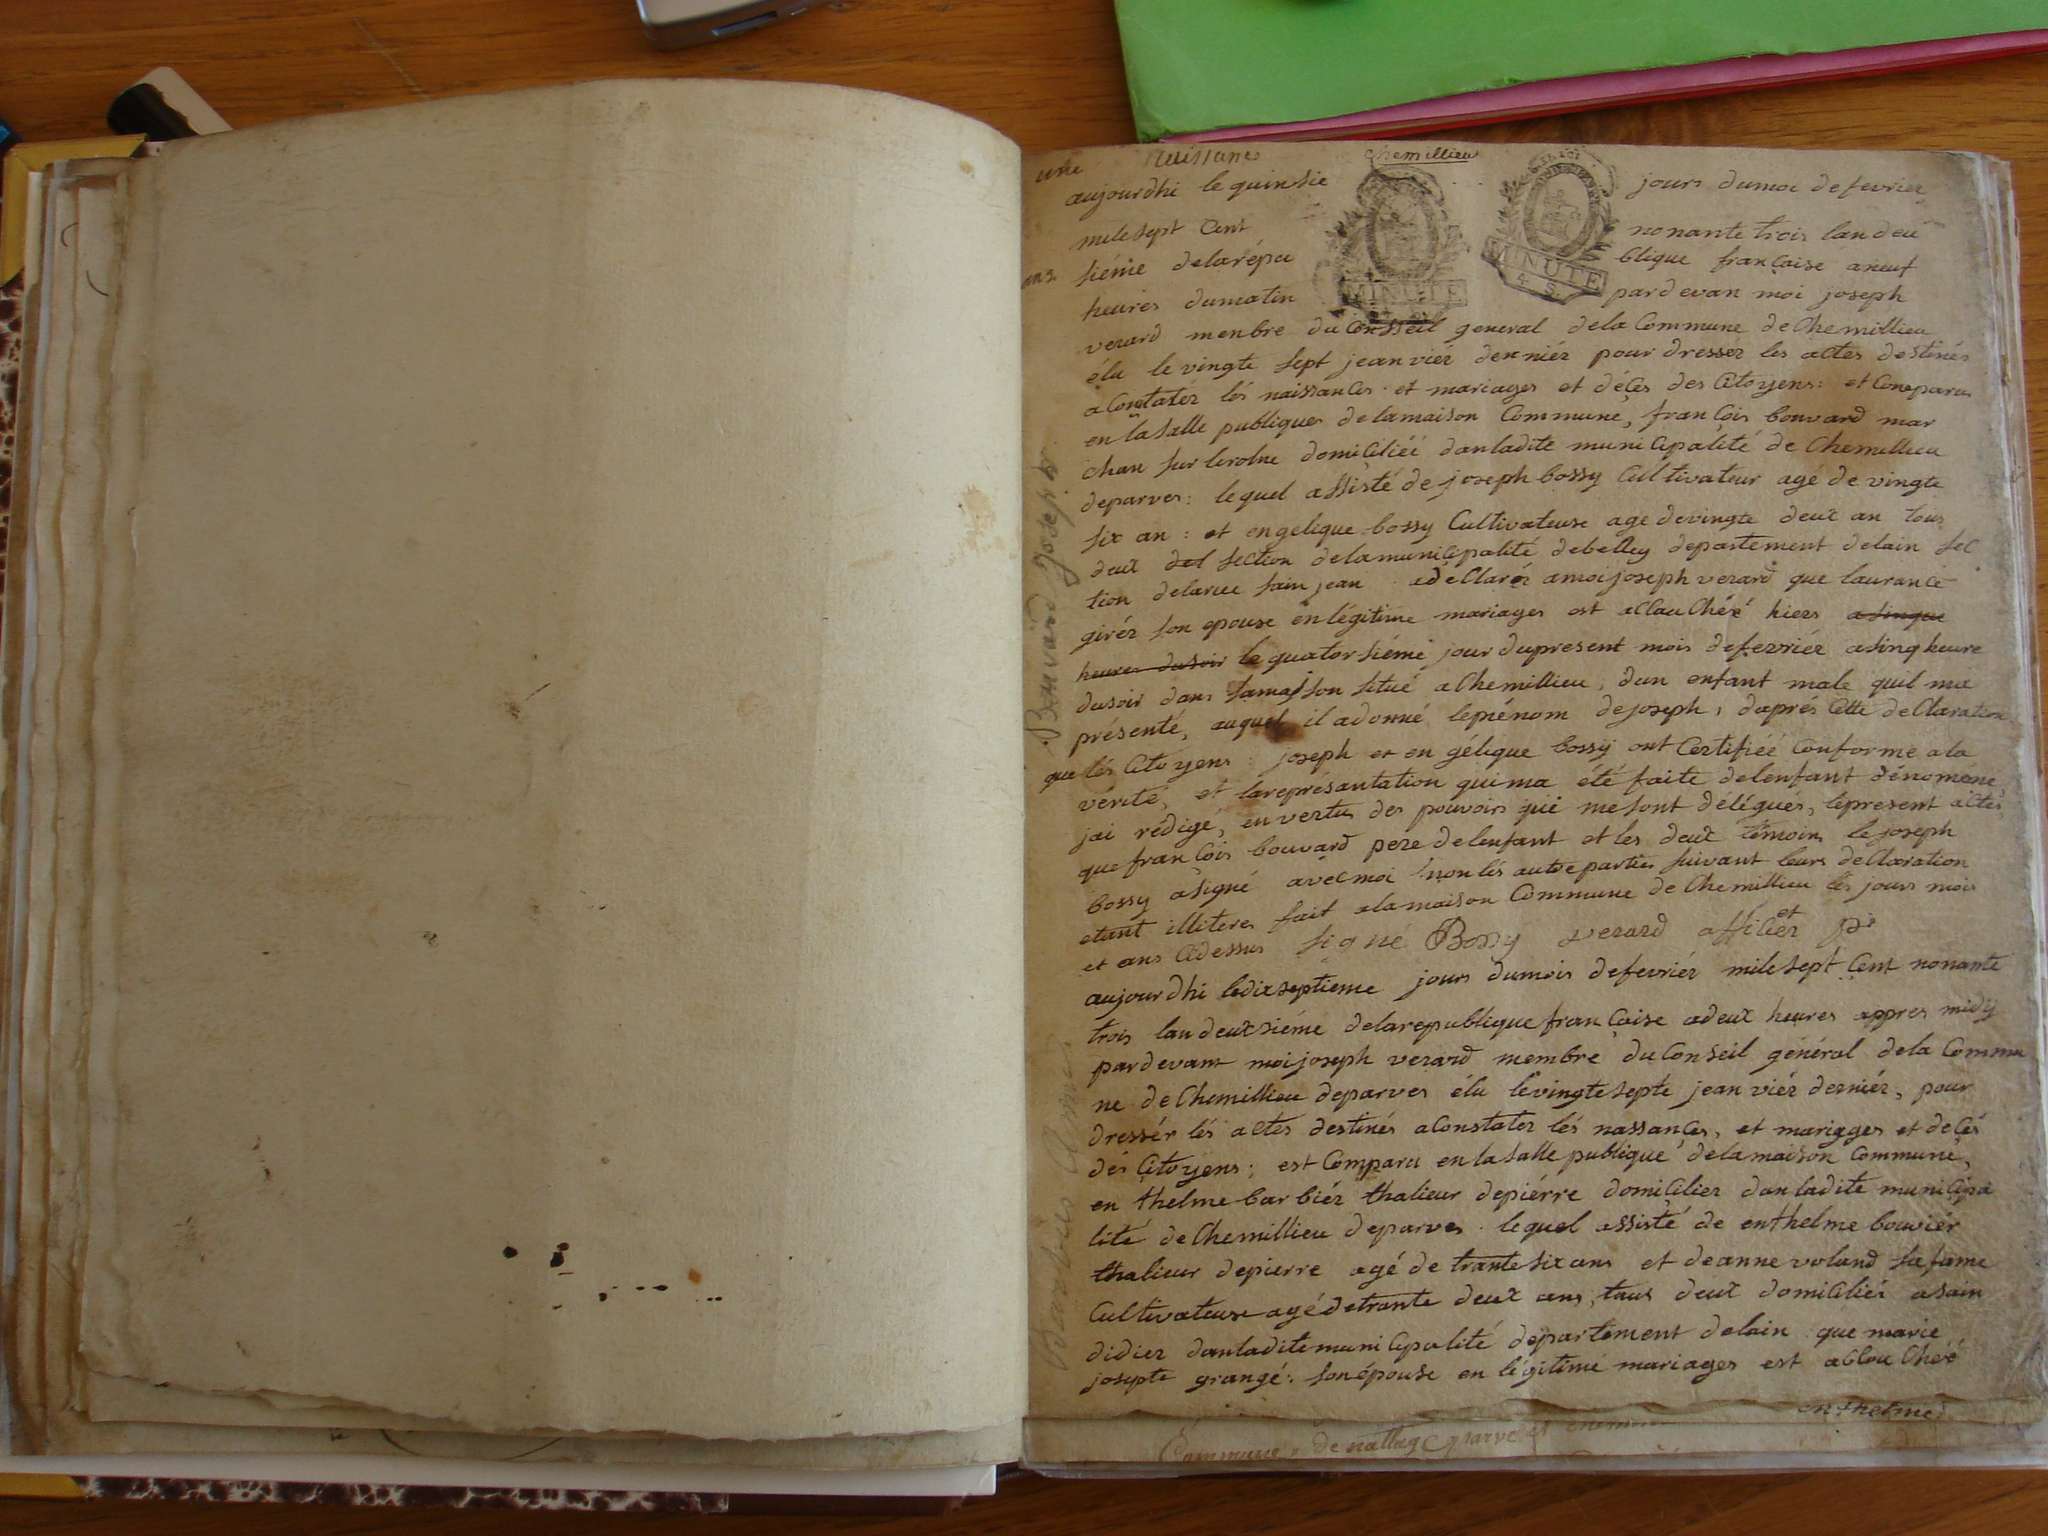 une Naissance chemillieu
aujourdhi le quinsie jours dumoi defevriez
mile sept Cent nonante trois landeu
ans siéme delarépu blique française aneuf
heures dumatin pardevan moi joseph
MINUTE
MINUTE
4 S.
verard menbre du Consseil general dela Commune deChemillieu
élu le vingte sept jeanviér derniér pour dressér les actes destinés
aConstatér lés naissances et mariages et décés des Citoyens: et Comparu
en lasalle publiques delamaison Commune, françois bouvard mar
chan sur lerolne domiciliéé danladite municipalité de Chemillieu
deparves: lequel assisté de joseph bossy Cultivateur agé de vingte
six an: et engelique bossy Cultivateuse age devingte deux an tous
deux del section delamunicipalité debelley departement delain sec
tion delarue sain jean adéClarér amoi joseph verard que laurance
girér son epouse en légitime mariages est aCCouChéé hiers asinque
heures dusoir le quatorsiéme jour dupresent mois defevriér asinq heure
dusoir dans samaison situé aChemillieu, dun enfant male quil ma
présenté, auquel il adonné leprénom dejoseph, daprés Cette deClaration
que lés Citoyens: joseph et en gélique bossy ont Certifiéé Conforme ala
vérité, et lareprésantation quima été faite delenfant dénoméne
jai rédigé, en vertus des pouvoirs qui mesont délégués, lepresent actes
que françois bouvard pere delenfant et les deux témoins le joseph
bossy asigné avec moi non lés autre parties suivant leurs deClaration
etant illiteres fait alamaison Commune de Chemillieu lés jours mois
et ans Cidessus signé Bossy verard affilier et
Bouvard Joseph
aujourdhi ledixseptieme jours dumois defevriér mile sept Cent nonante
trois landeuxsiéme delarepublique française adeux heures appres midy
pardevant moijoseph verard membre duConseil général dela Commu
ne deChemillieu deparves élu levingtesepte jeanviér derniér, pour
dressér lés actes destinés aConstatér lés nassances, et mariages et décés
dés Citoyens; est Comparu en lasalle publique delamaison Commune,
en thelme barbiér thalieur depiérre domicilier danladite municipa
lité deChemillieu deparves lequel assisté de enthelme bouviér
thalieur depierre agé de trante six ans et deanne voland safame
Cultivateuse agé détrante deux ans, tous deux domiciliés asain
didier danladitemunicipalité departement delain que marie
josepte grangé: sonépouse en légitime mariages est aCCouChéé
Barbier
enthelme
Commune de nattage parves et chemi